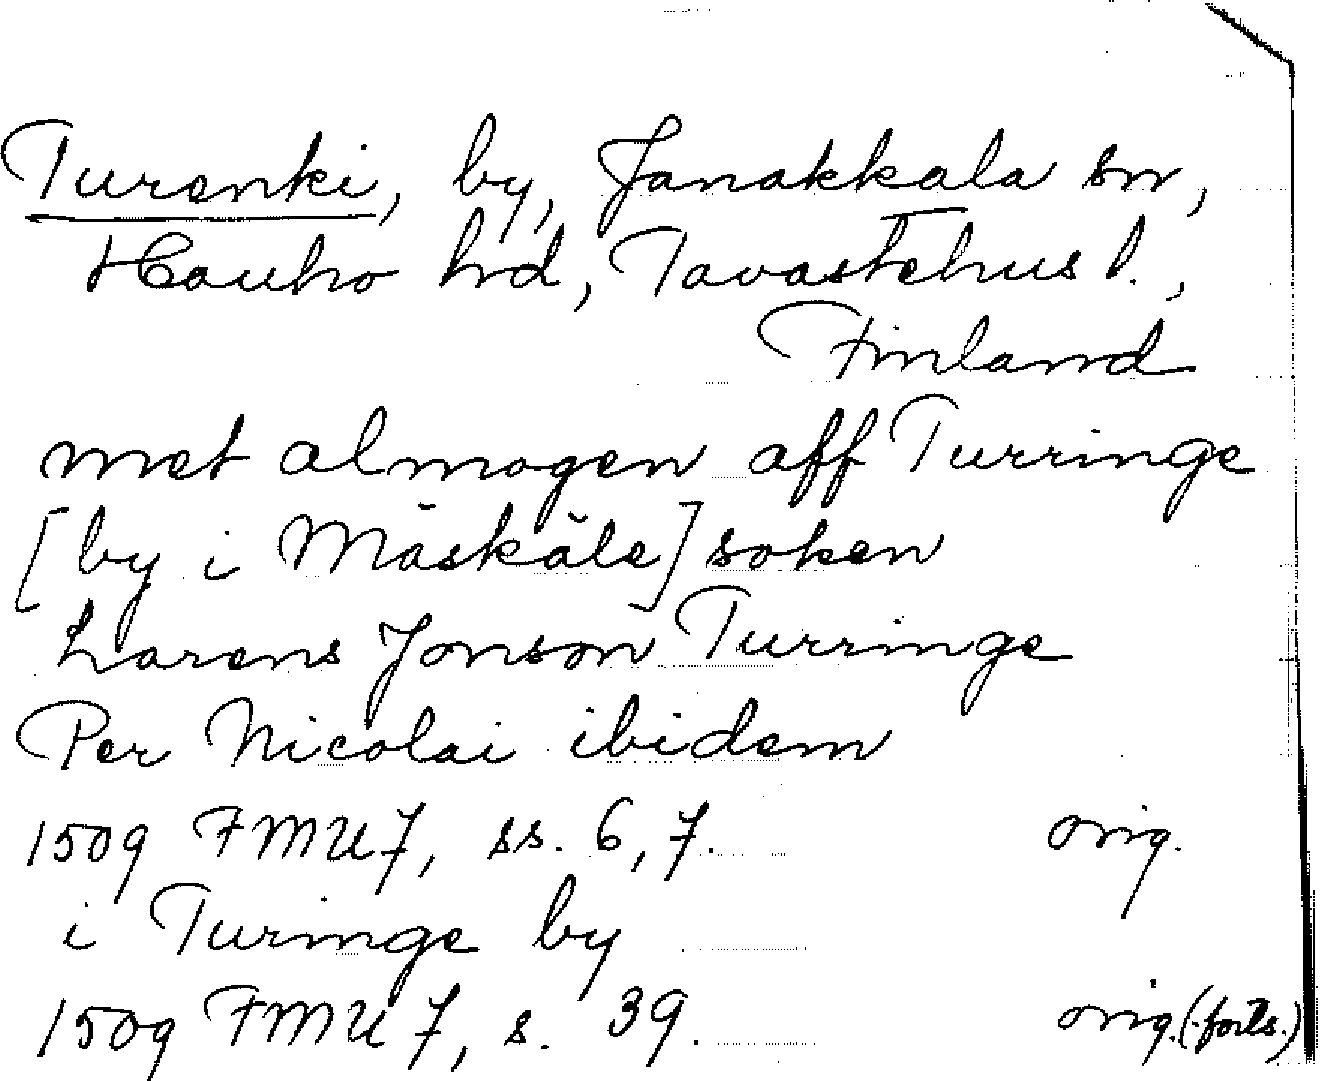 Turenki, by, Janakkala sn,
Hauho hrd, Tavastehus l.,
Finland
met almogen aff Turringe
[by i Mäskäle] soken
Larens Jonson Turringe
Per Nicolai ibidem
1509 FMU 7, ss. 6, 7. orig.
i Turinge by
1509 FMU 7, s. 39. orig. (forts.)